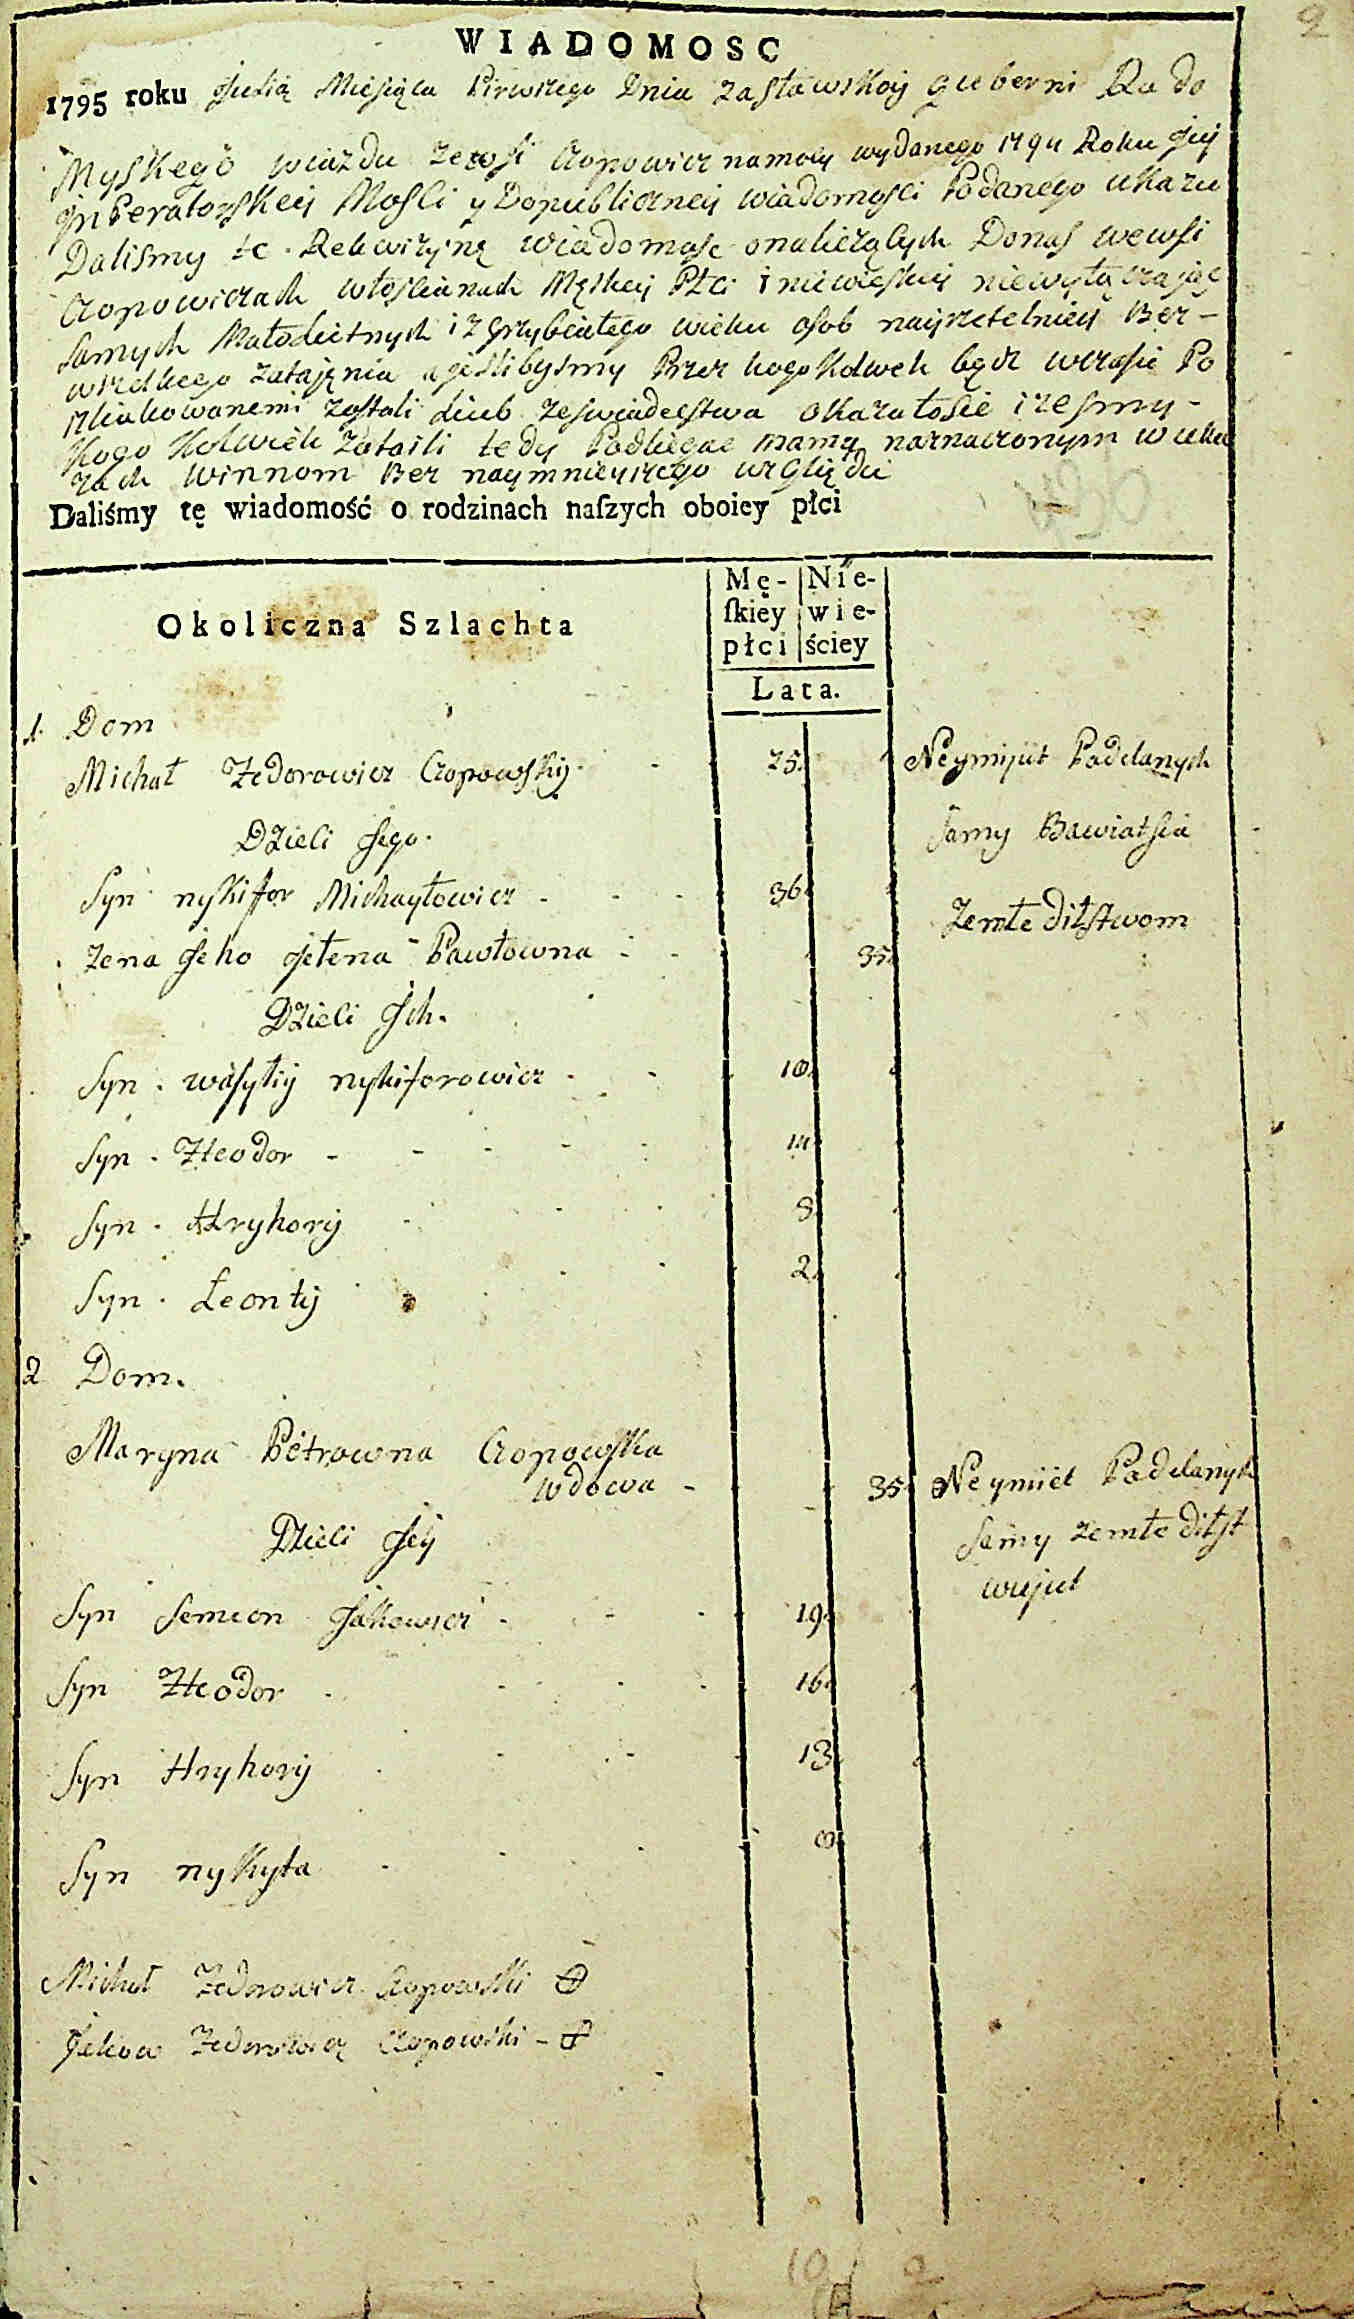 2
WIADOMOSC
1795 roku Julią Miesiąca Pirwszego Dnia Zasławskoy guberni Rado
Myskego wiazdu ze wsi Czopowicz na mocy wydanego 1794 Roku Jey
JnPeratorskey Mosci y Dopubliczney wiadomosci Podanego ukazu
Dalismy te Rewizyiną wiadomosc onaliczących Donas wewsi
Czopowiczach włoscianach Męskey Płci i niewieskiey niewyłączaiąc
samych Małoletnych i zgrzybiałego wieku osob nayrzetelniey Bez-
wszelkego zataięnia a jeslibysmy Przez kogo Kolwek bądz wczasie Po
szlakowanemi zostali Liub zeswiadectwa okazałosie izesmy-
Kogo Kolwiek zataili tedy Podlegac mamy naznaczonym w uka
zach winnom Bez naymnieyszego względu
Daliśmy tę wiadomość o rodzinach naſzych oboiey płci
Okoliczna Szlachta
Mę- Nie-
ſkiey wie-
płci ściey
Lata.
1. Dom
Michał Fedorowicz Czopowskiy - 75. Neymijut Padelanych
Dzieci Jego. samy Bawiatsia
Syn nykifor Michayłowicz - 36. Zemłe diłstwom
zena Jeho Jełena Pawłowna - 35.
Dzieci Jch.
Syn. wasyliy nykiforowicz - 18.
Syn. Fteodor - - - - 14.
Syn. Hryhoriy 8.
Syn. Leontiy 2.
2 Dom.
Maryna Petrowna Czopowska
wdowa - 35. Neymiiet Padelanych
Dzieci Jey samy zemłe diłst
wujut
Syn Semion Jakowicz - 19.
Syn Fteodor 16.
Syn Hryhoriy 13.
Syn nykyta 8.
Michał Fedorowicz Czopowski
Jakow Fedorowicz Czopowski -
10 2